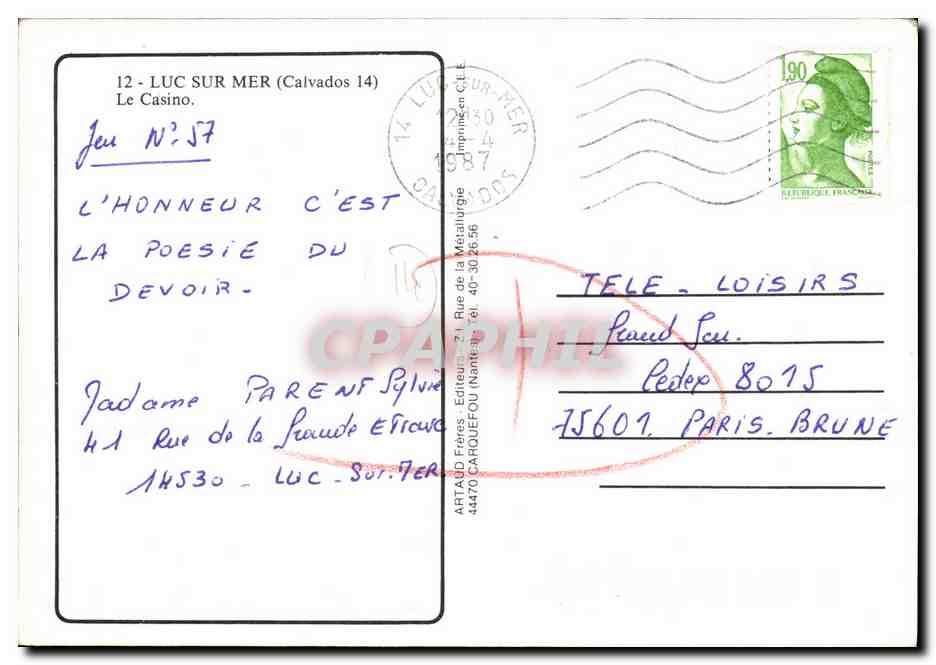 12 - LUC SUR MER (Calvados 14)
Le Casino.
Jeu N° 57
L'HONNEUR C'EST
LA POESIE DU
DEVOIR.
Madame PARENT Sylvie
41 Rue de la Grande
14530 - LUC - Sur. MER.
ARTAUD Frères - Editeurs - 21, Rue de la Métallurgie
44470 CARQUEFOU (Nantes) - Tél. 40-30.26.56
Imprimé en C.E.E.
14 LUC-SUR-MER
12H30
4-4
1987
CALVADOS
1,90
REPUBLIQUE FRANÇAISE
TELE - LOISIRS
Grand Jeu.
Cedex 8015
75601. PARIS. BRUNE
CPAPHIL